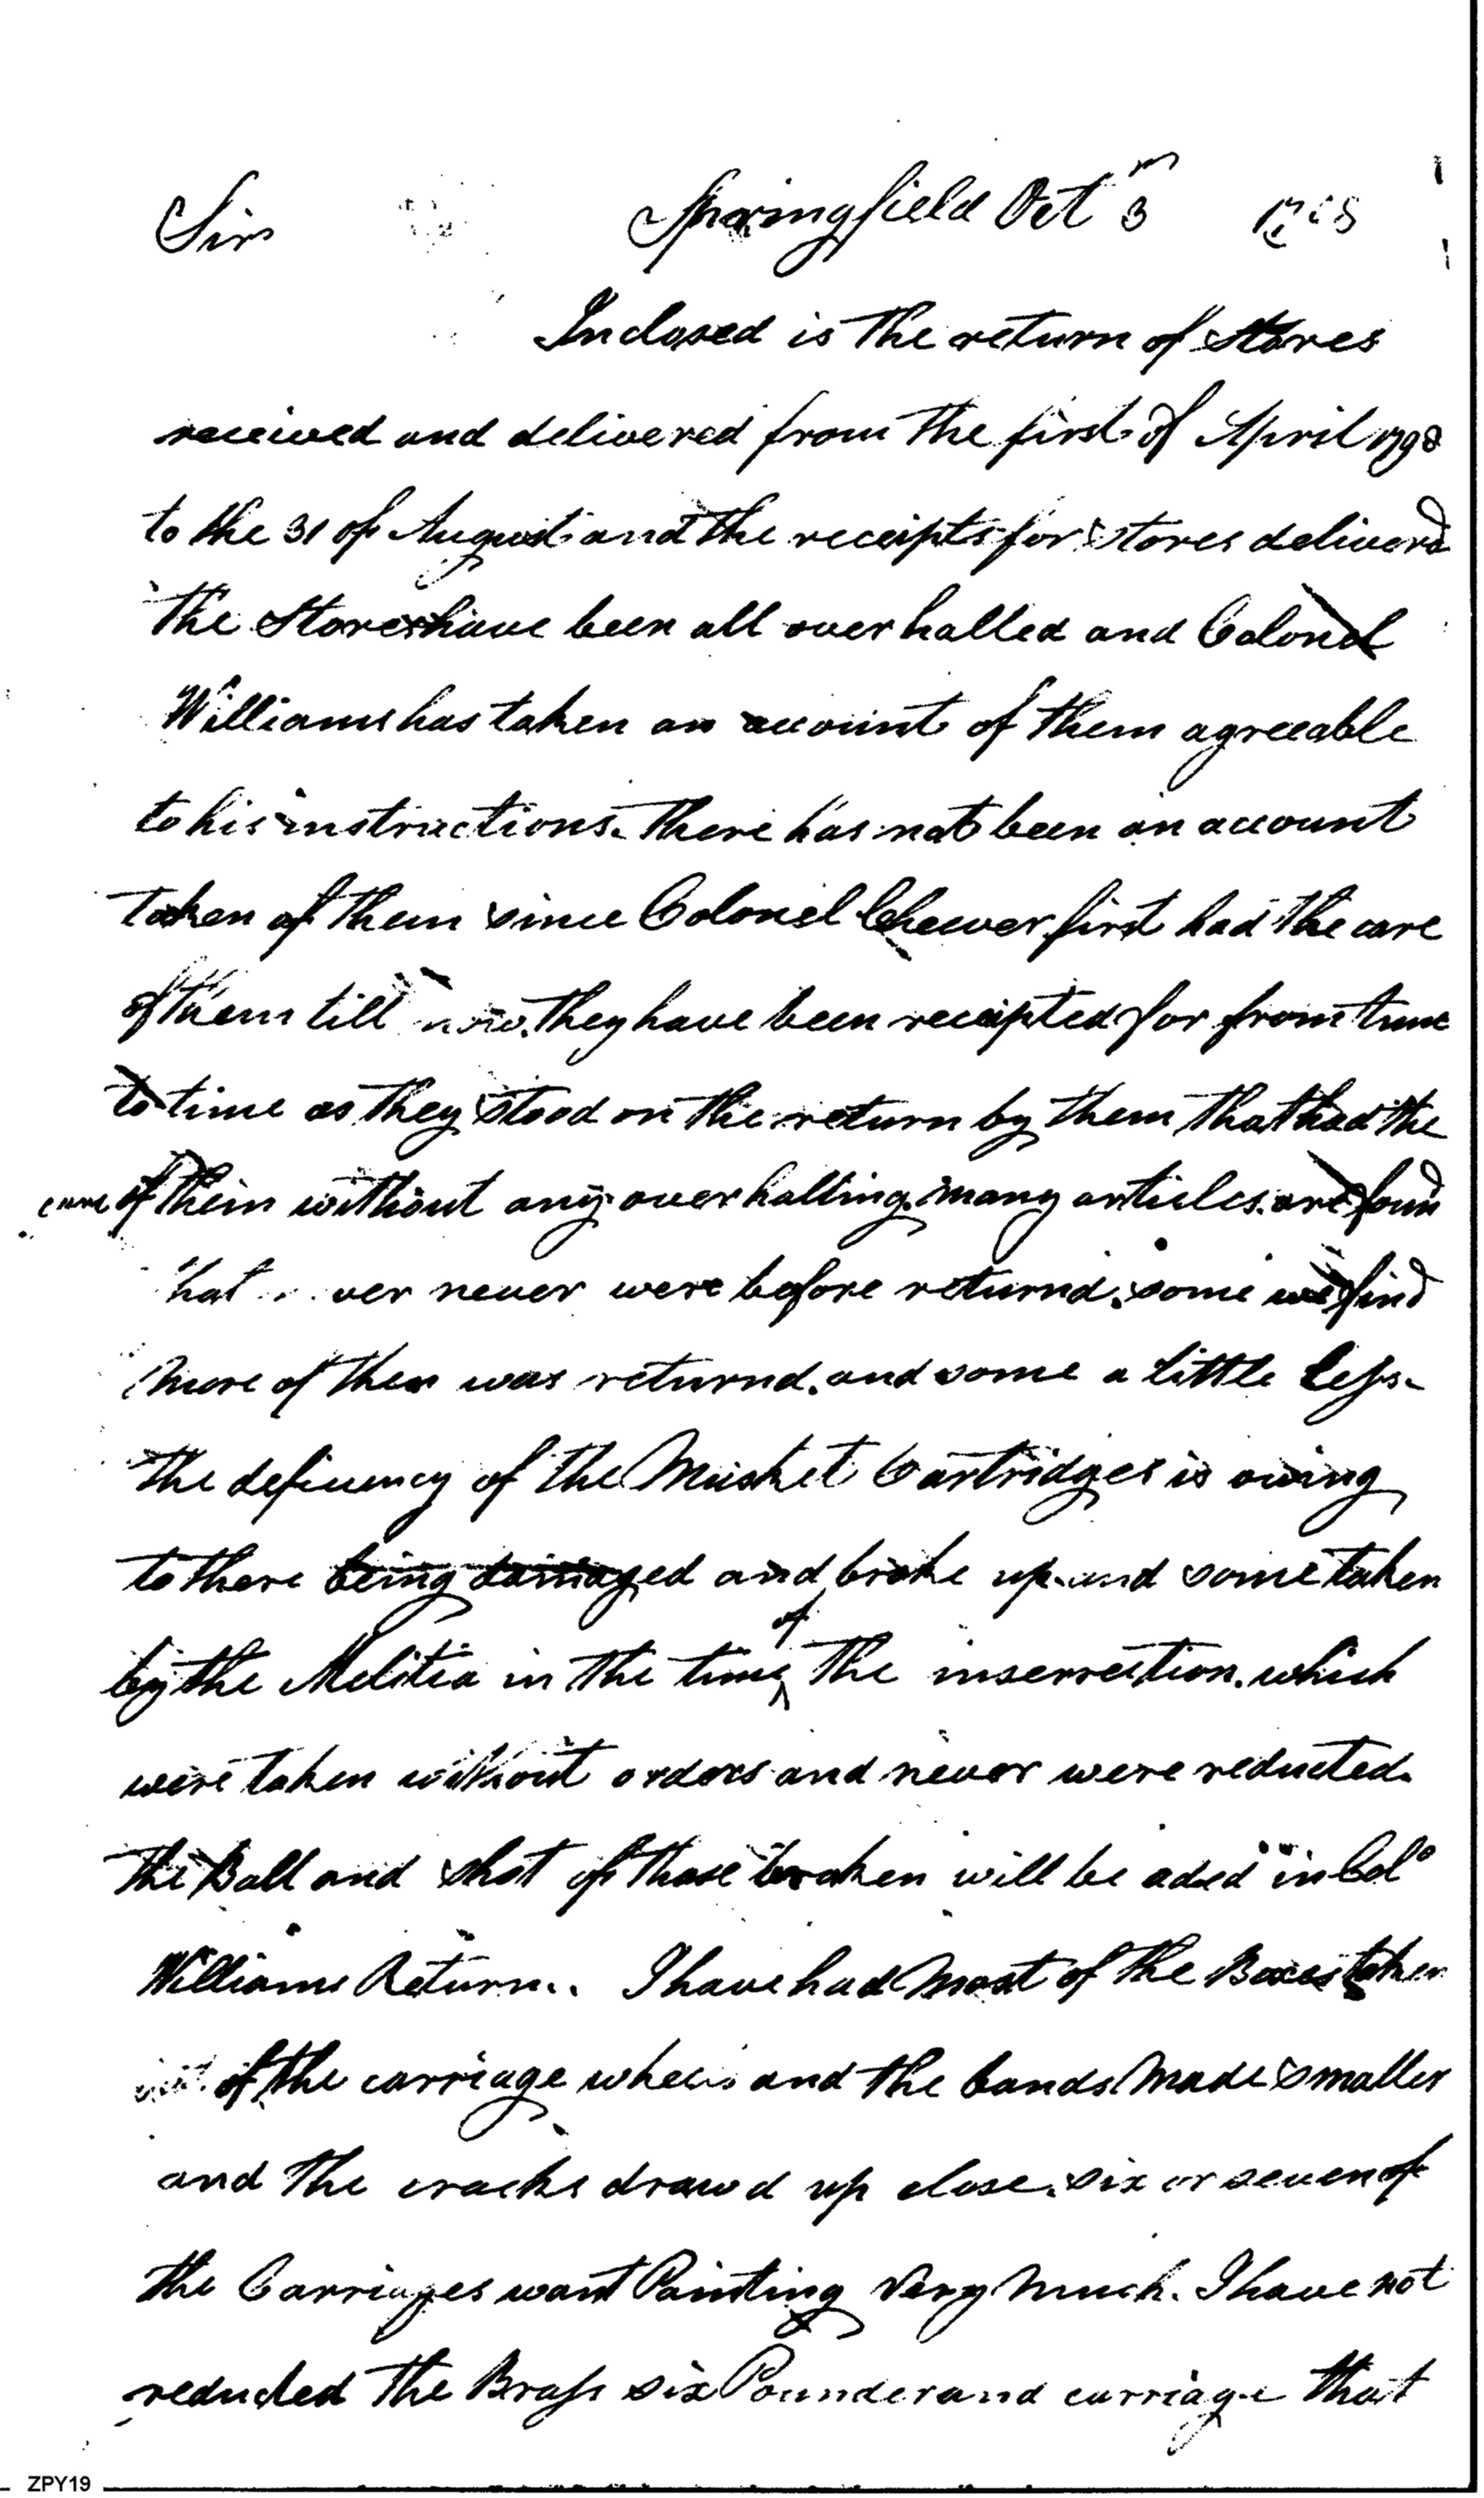 Sir Springfield Oct 3
Inclosed is the return of Stores
received and delivered from the first of April 1798
to the 31 of August and the receipts for stores deliverd
the Stores have been all over halled and Colonel
Williams has taken an account of them agreeable
to his instructions. there has not been an account
taken of them since Colonel Cheever first had the care
of them till now. they have been receipted for from time
to time as they stood on the return by them that had the
care of them without any over halling. many articles are found
never were before returnd. some we find
more of then was returnd. and some a little less.
the deficiency of the Musket Cartridges is owing
to there being damaged and broke up. and some taken
by the Melitia in the time of the inserrection. which
were taken without orders and never were reducted.
the Ball and shot of those broken will be aded in Colo
Williams Return. I have had most of the Boxes taken
of the carriage wheels and the bands made smaller
and the cracks drawd up close. six or seven of
the Carriages want Painting Very much. I have not
reducted the Brass six Pounder and carriage that
ZPY19